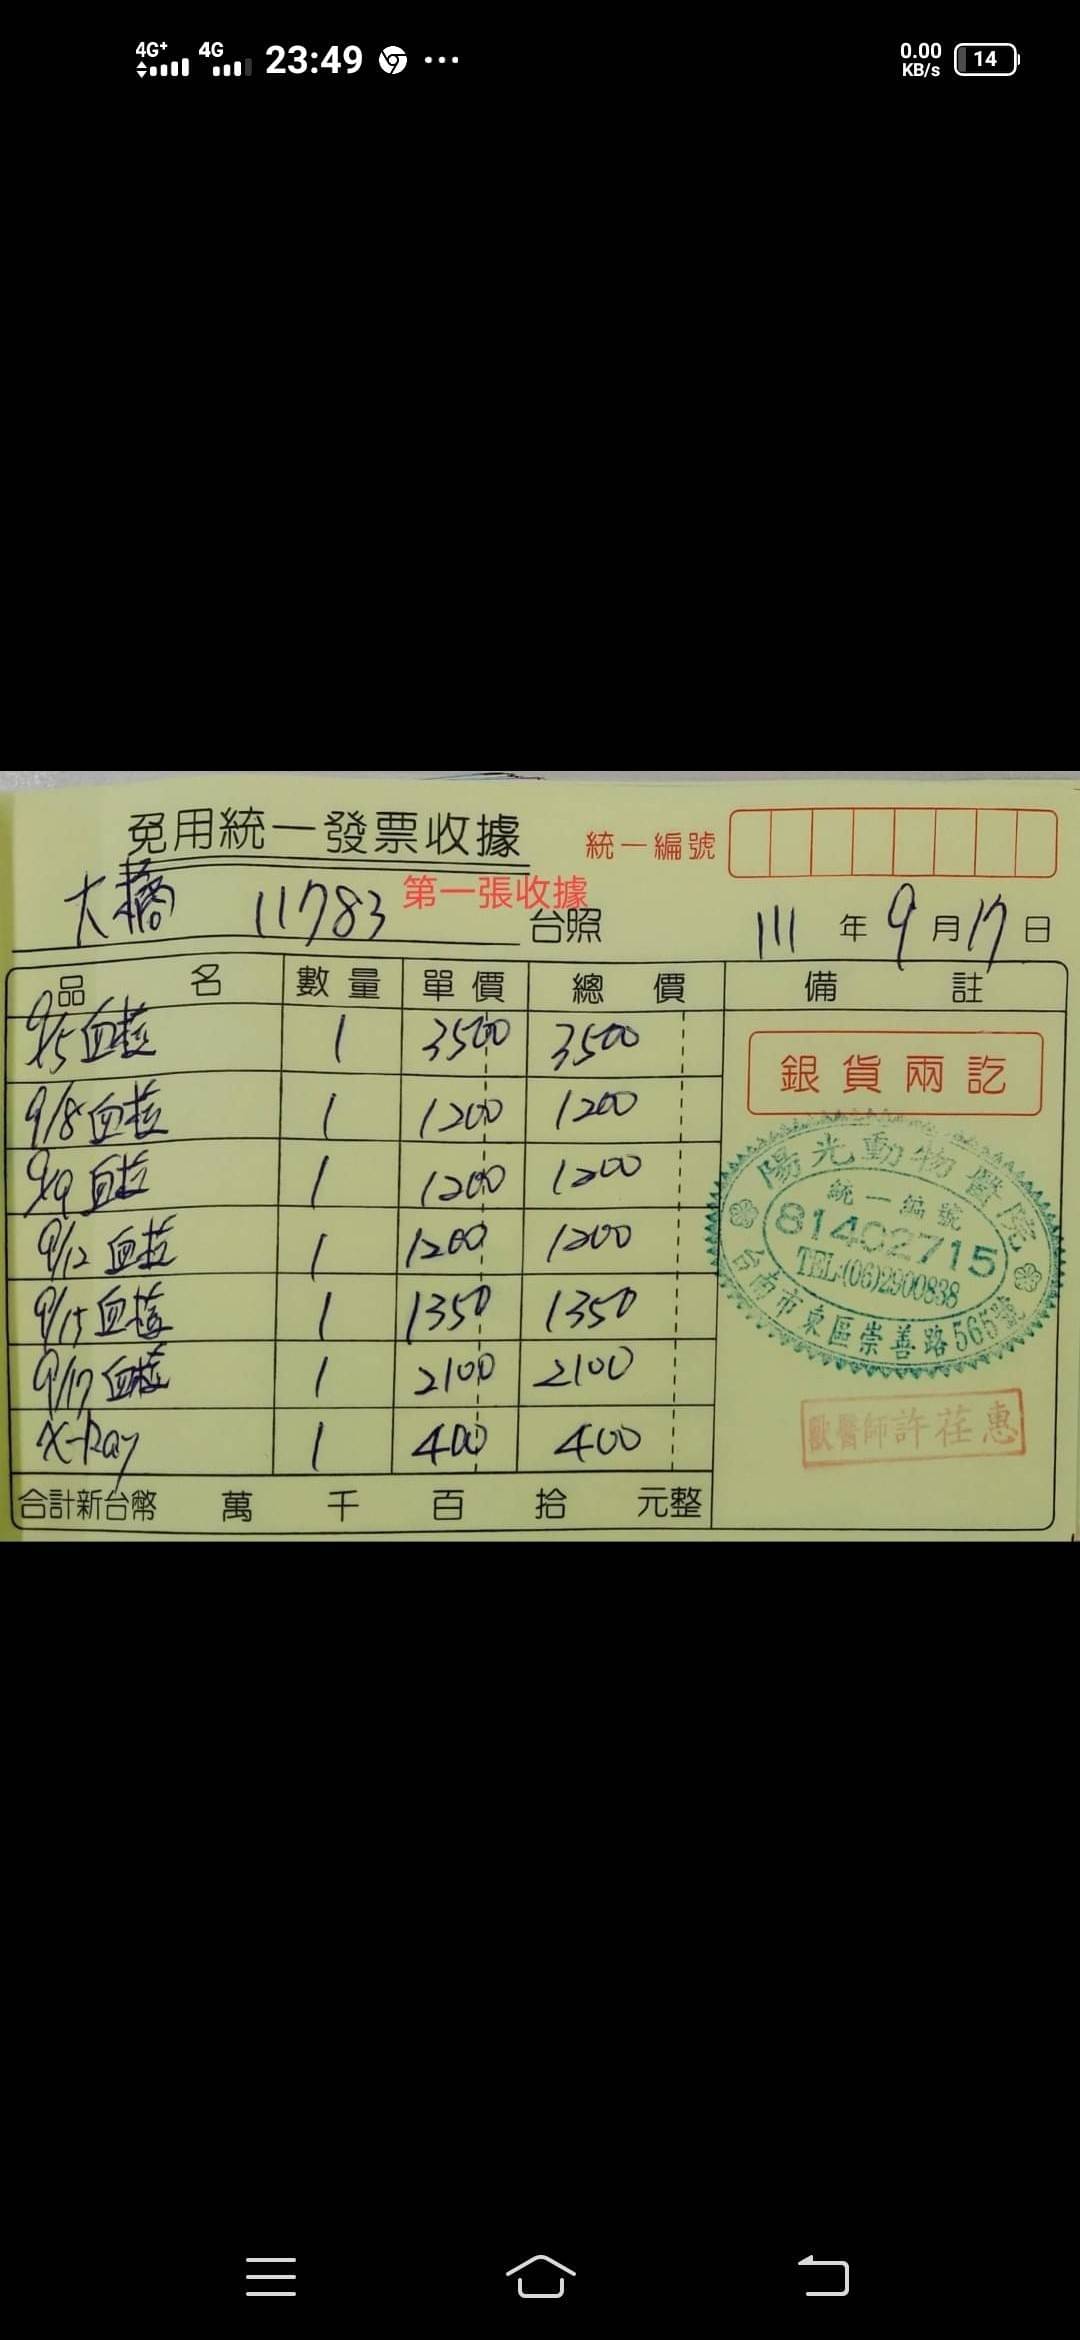 4G+ 4G 23:49 ... 0.00 KB/s 14
免用統一發票收據 統一編號
大橋 11783 第一張收據 台照 111年9月17日
品名 數量 單價 總價 備註
9/5 血檢 1 3500 3500
銀貨兩訖
9/8 血檢 1 1200 1200
9/9 血檢 1 1200 1200
9/12 血檢 1 1200 1200
9/15 血檢 1 1350 1350
9/17 血檢 1 2100 2100
X-Ray 1 400 400
合計新台幣 萬 千 百 拾 元整
陽光動物醫院
統一編號
81402715
TEL:(06)2900838
台南市東區崇善路565號
獸醫師許荏惠